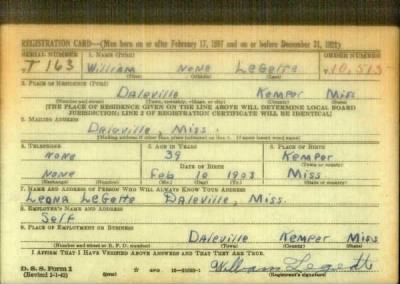 REGISTRATION CARD—(Men born on or after February 17, 1897 and on or before December 31, 1921)
SERIAL NUMBER 1. NAME (Print) ORDER NUMBER
T 163 William None LeGette 10,515
(First) (Middle) (Last)
2. PLACE OF RESIDENCE (Print)
Daleville Kemper Miss
(Number and street) (Town, township, village, or city) (County) (State)
[THE PLACE OF RESIDENCE GIVEN ON THE LINE ABOVE WILL DETERMINE LOCAL BOARD
JURISDICTION; LINE 2 OF REGISTRATION CERTIFICATE WILL BE IDENTICAL]
3. MAILING ADDRESS
Daleville Miss.
(Mailing address if other than place indicated on line 2. If same insert word same)
4. TELEPHONE 5. AGE IN YEARS 6. PLACE OF BIRTH
None 39 Kemper
DATE OF BIRTH (Town or county)
None Feb 10 1903 Miss
(Exchange) (Number) (Mo.) (Day) (Yr.) (State or country)
7. NAME AND ADDRESS OF PERSON WHO WILL ALWAYS KNOW YOUR ADDRESS
Leona LeGette Daleville, Miss.
8. EMPLOYER'S NAME AND ADDRESS
Self
9. PLACE OF EMPLOYMENT OR BUSINESS
Daleville Kemper Miss
(Number and street or R. F. D. number) (Town) (County) (State)
I AFFIRM THAT I HAVE VERIFIED ABOVE ANSWERS AND THAT THEY ARE TRUE.
D. S. S. Form 1
(Revised 1-1-42) (over) William Legette
(Registrant's signature)